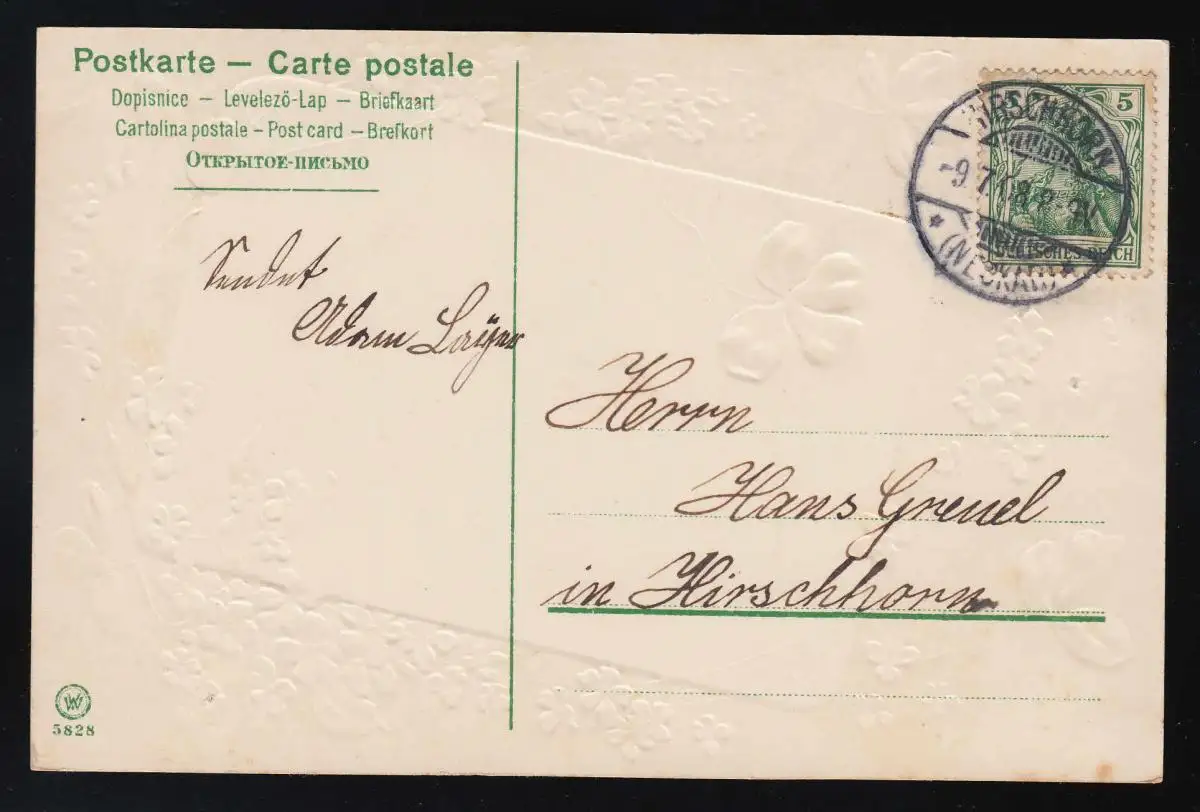 Postkarte — Carte postale
Dopisnice — Levelezö-Lap — Briefkaart
Cartolina postale — Post card — Brefkort
Открытое-письмо
Sendet
Adam
Herrn
Hans Greuel
in Hirschhorn
5
DEUTSCHES REICH
HIRSCHHORN
-9.7.08.8-9V.
* (NECKAR) *
W
5828